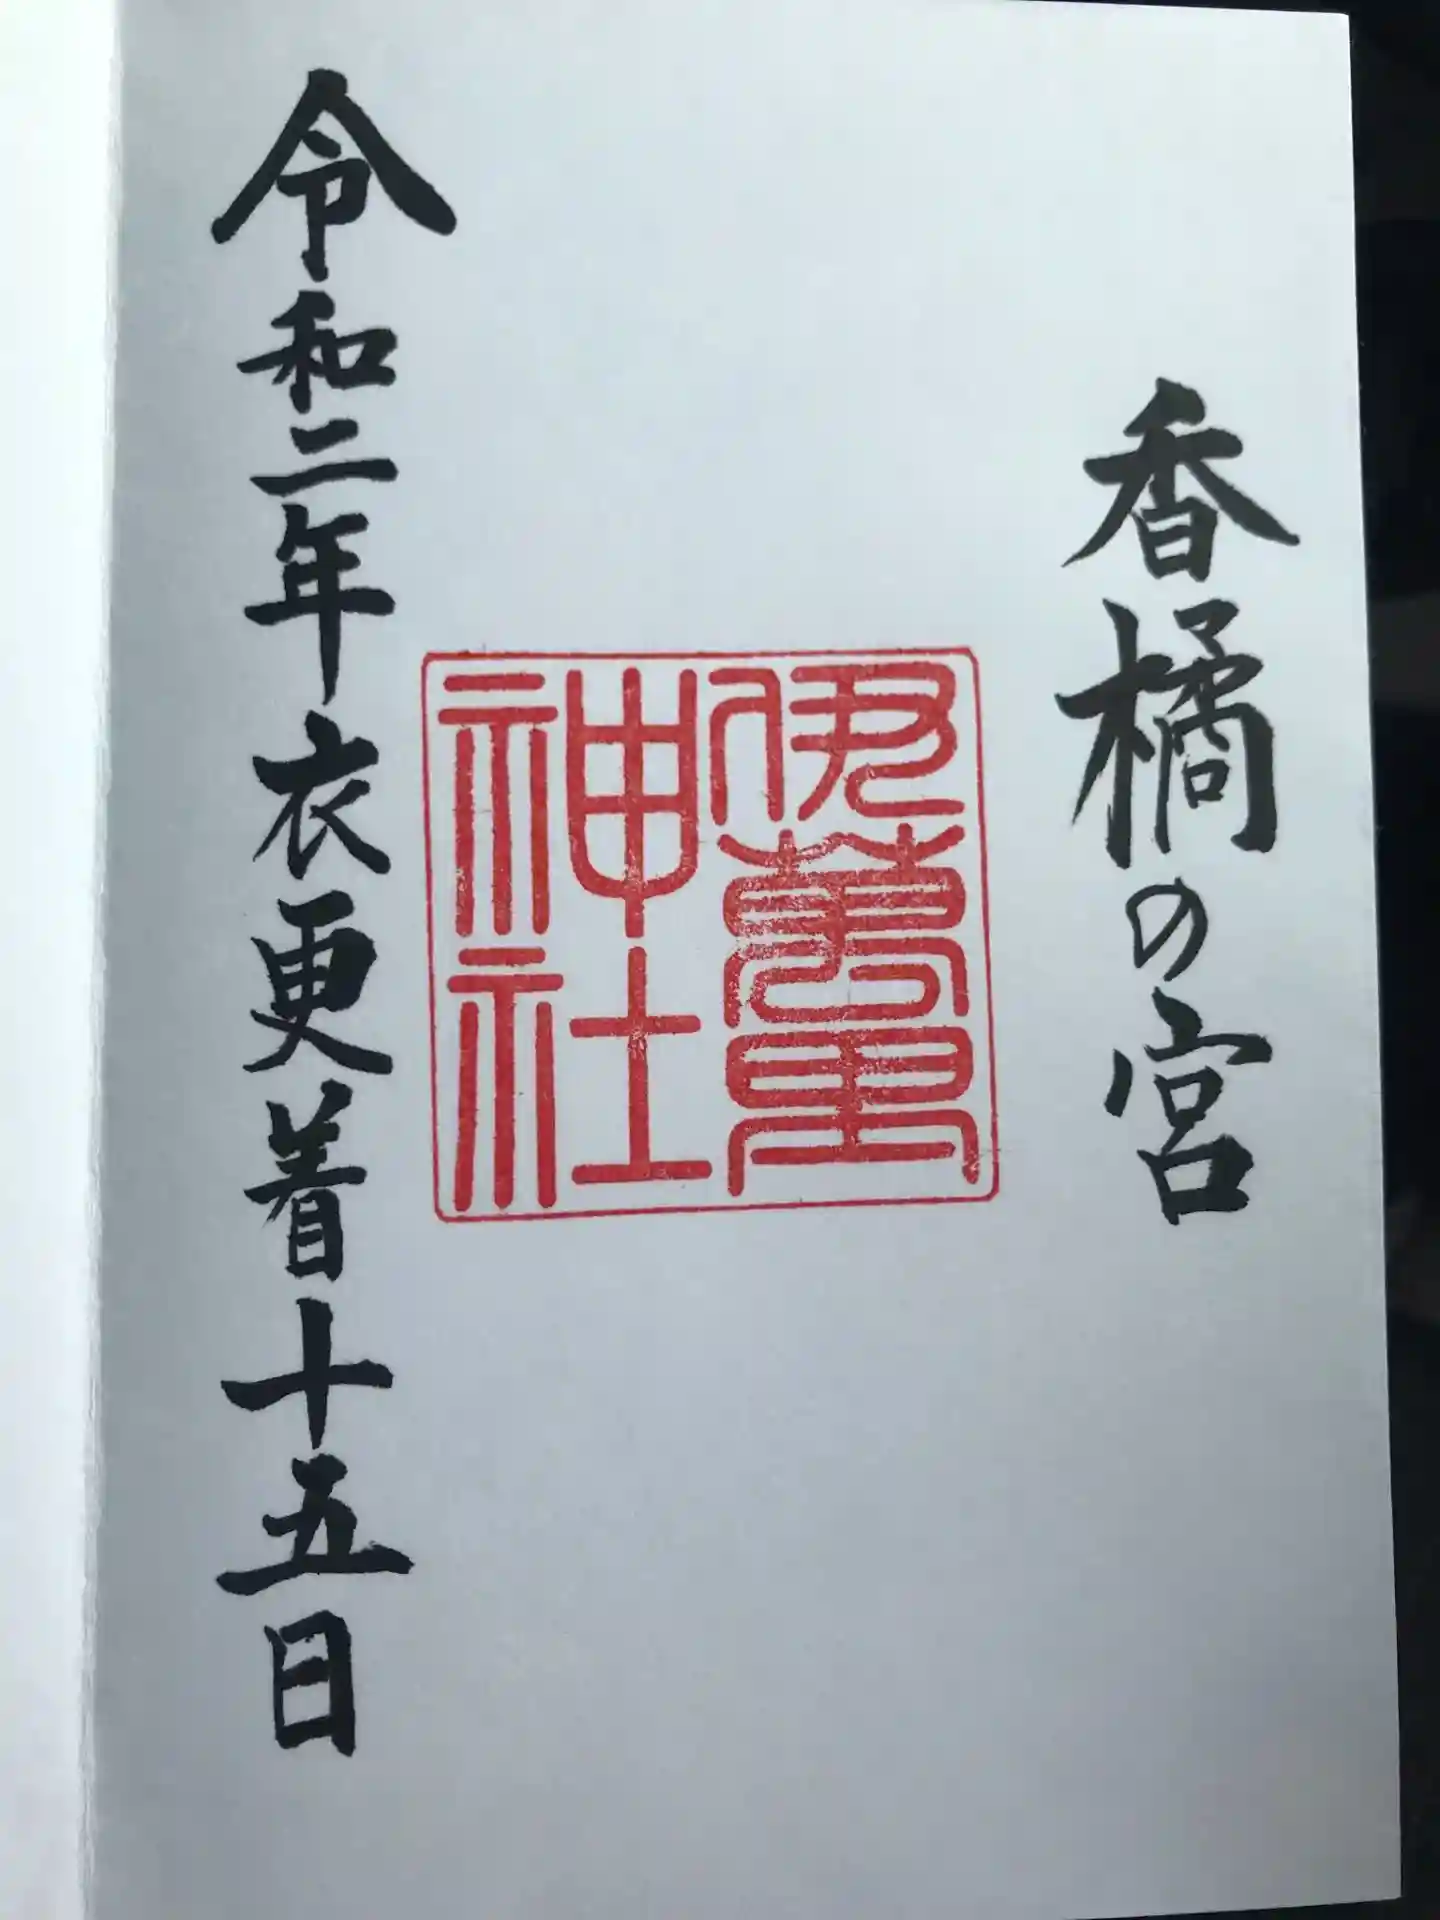 香橘の宮
伊萬里
神社
令和二年衣更着十五日